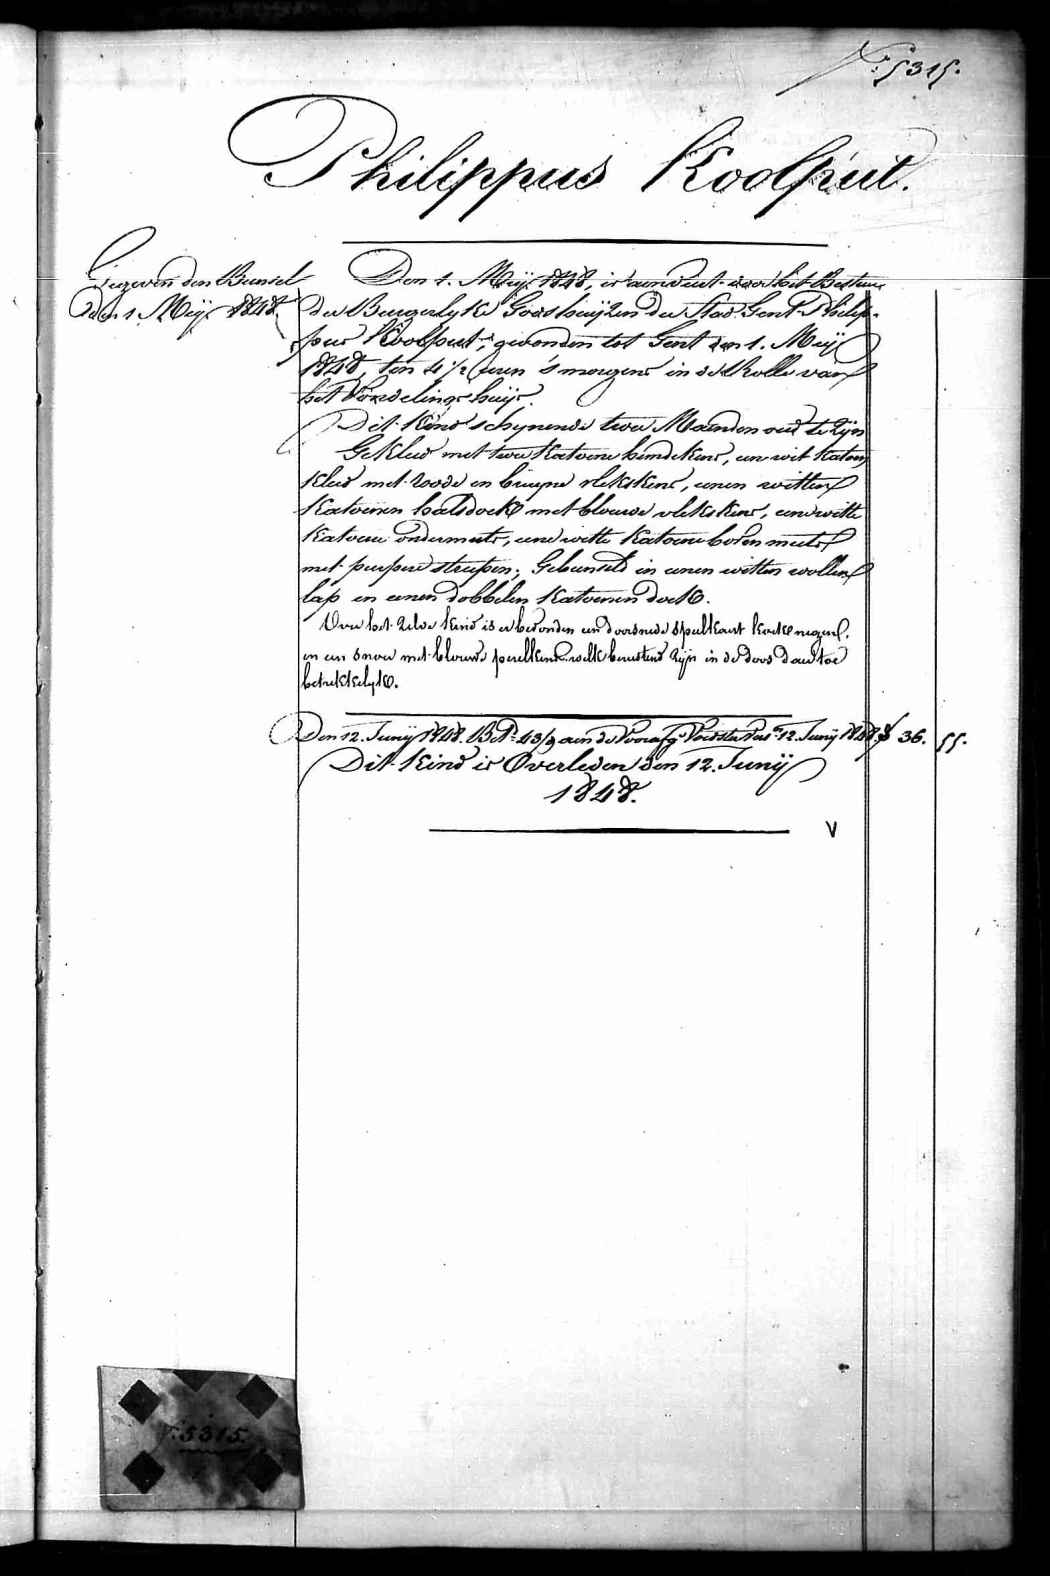 N° 5315.
Philippus Koolput.
Gegeven den Bunsel
den 1 Meÿ 1848.
Den 1. Meÿ 1848, is aenveert door het Bestuur
der Burgerlyke Godshuÿzen der Stad Gent Philip-
pus Koolput, gevonden tot Gent den 1. Meÿ
1848, ten 4 1/2 uren 's morgens in de Rolle van
het Vondelingshuÿs.
Dit Kind schynende twee Maenden oud te zyn
Gekleed met twee katoene hemdekens, een wit katoen
kleed met roode en bruyne vlekskens, eenen witten
katoenen halsdoek met blauwe vlekskens, eene witte
katoene ondermuts, eene witte katoene boven muts
met purpere streepen; Gebunseld in eenen witten wollen
lap en eenen dobbelen katoenen doek.
Over het zelve kind is er bevonden een doorsnede speelkaert koeke negen,
en een snoer met blauwe peerelkens welk berustend zyn in de doos daer toe
betrekkelyk.
Den 12. Junÿ 1848. Bet. 43/9 aen de Voorz. Voedster Rust 12. Junÿ 1848 $ 36. 55.
Dit Kind is Overleden den 12. Junÿ
1848.
V
N° 5315.